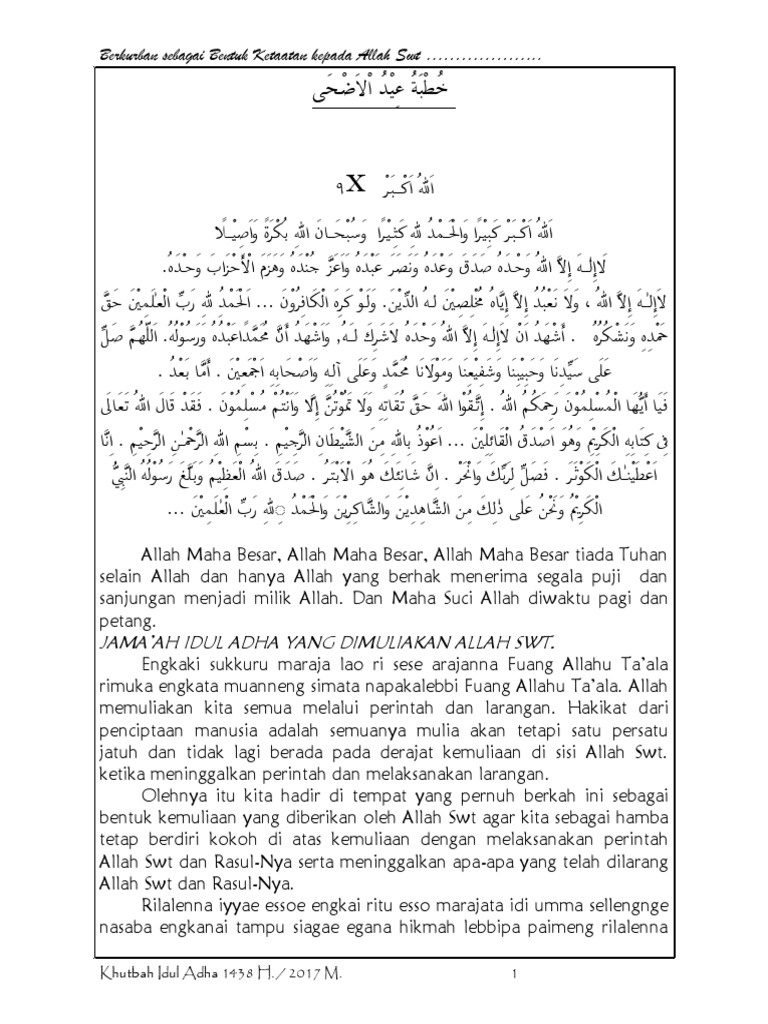 Berkurban sebagai Bentuk Ketaatan kepada Allah Swt ....................
خُطْبَةُ عِيْدُ اْلاَضْحَى
اَللهُ اَكْـبَرْ X ٩
اَللهُ اَكْـبَرْ كَبِيْرًا وَالْحَـمْدُ لِلهِ كَثِـيْرًا وَسُبْحَـانَ اللهِ بُكْرَةً وَاَصِيْـلًا
لَاإِلٰـهَ إِلاَّ اللهُ وَحْدَهُ صَدَقَ وَعْدَهُ وَنَصَرَ عَبْدَهُ وَاَعَزَّ جُنْدَهُ وَهَزَمَ الْأَحْزَابَ وَحْدَهُ.
لاَإِلٰـهَ اِلاَّ اللهُ ، وَلاَ نَعْبُدُ إِلاَّ إِيَّاهُ مُخْلِصِيْنَ لـهُ الدِّيْنَ. وَلَوْ كَرِهَ الْكَافِرُوْنَ ... اَلْحَمْدُ لِلهِ رَبِّ الْعٰلَمِيْنَ حَقَّ
حَمْدِهِ وَنَشْكُرُهُ . أَشْهَدُ اَنْ لاَإِلٰـهَ إِلاَّ اللهُ وَحْدَهُ لاَشَرِكَ لَـهُ, وَاَشْهَدُ اَنَّ مُحَمَّدًاعَبْدُهُ وَرَسُوْلُهُ. اَللّٰهُمَّ صَلِّ
عَلَى سَيِّدِنَا وَحَبِيْبِنَا وَشَفِيْعِنَا وَمَوْلَانَا مُحَمَّدٍ وَعَلَى آلِهِ وَاَصْحَابِهِ اَجْمَعِيْنَ . أَمَّا بَعْدُ .
فَيَا أَيُّهَا الْمُسْلِمُوْنَ رَحِمَكُمُ اللهُ . إِتَّقُوْا اللهَ حَقَّ تُقَاتِهِ وَلَا تَمُوْتُنَّ إِلَّا وَانْتُمْ مُسْلِمُوْنَ . فَقَدْ قَالَ اللهُ تَعَالَى
فِى كِتَابِهِ الْكَرِيْمِ وَهُوَ اَصْدَقُ الْقَائِلِيْنَ ... اَعُوْذُ بِاللهِ مِنَ الشَّيْطَانِ الرَّجِيْمِ . بِسْمِ اللهِ الرَّحْمٰنِ الرَّحِيْمِ . اِنَّا
اَعْطَيْنٰـكَ الْكَوْثَرَ . فَصَلِّ لِرَبِّكَ وَانْحَرْ . اِنَّ شَانِئَكَ هُوَ الْاَبْتَرُ . صَدَقَ اللهُ الْعَظِيْمُ وَبَلَّغَ رَسُوْلُهُ النَّبِيُّ
الْكَرِيْمُ وَنَحْنُ عَلَى ذٰلِكَ مِنَ الشَّاهِدِيْنَ وَالشَّاكِرِيْنَ وَالْحَمْدُ لِلهِ رَبِّ الْعٰلَمِيْنَ ...
Allah Maha Besar, Allah Maha Besar, Allah Maha Besar tiada Tuhan
selain Allah dan hanya Allah yang berhak menerima segala puji dan
sanjungan menjadi milik Allah. Dan Maha Suci Allah diwaktu pagi dan
petang.
JAMA'AH IDUL ADHA YANG DIMULIAKAN ALLAH SWT.
Engkaki sukkuru maraja lao ri sese arajanna Fuang Allahu Ta'ala
rimuka engkata muanneng simata napakalebbi Fuang Allahu Ta'ala. Allah
memuliakan kita semua melalui perintah dan larangan. Hakikat dari
penciptaan manusia adalah semuanya mulia akan tetapi satu persatu
jatuh dan tidak lagi berada pada derajat kemuliaan di sisi Allah Swt.
ketika meninggalkan perintah dan melaksanakan larangan.
Olehnya itu kita hadir di tempat yang pernuh berkah ini sebagai
bentuk kemuliaan yang diberikan oleh Allah Swt agar kita sebagai hamba
tetap berdiri kokoh di atas kemuliaan dengan melaksanakan perintah
Allah Swt dan Rasul-Nya serta meninggalkan apa-apa yang telah dilarang
Allah Swt dan Rasul-Nya.
Rilalenna iyyae essoe engkai ritu esso marajata idi umma sellengnge
nasaba engkanai tampu siagae egana hikmah lebbipa paimeng rilalenna
Khutbah Idul Adha 1438 H. / 2017 M. 1